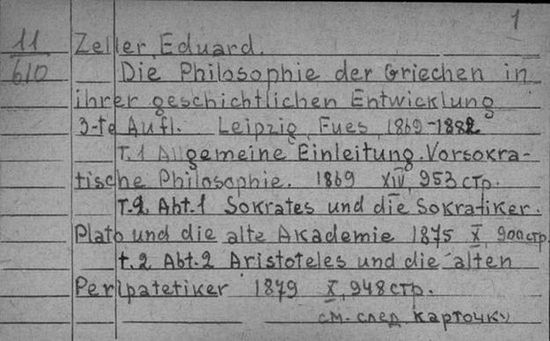 1
11 Zeller, Eduard.
610 Die Philosophie der Griechen in
ihrer geschichtlichen Entwicklung
3-te Aufl. Leipzig, Fues, 1869-1882
Т.1 Allgemeine Einleitung. Vorsokra-
tische Philosophie. 1869 XIV, 953 стр.
Т.2, Abt.1 Sokrates und die Sokratiker.
Plato und die alte Akademie 1875 X, 900 стр
т.2 Abt.2 Aristoteles und die alten
Peripatetiker 1879 X, 948 стр.
см. след. карточку